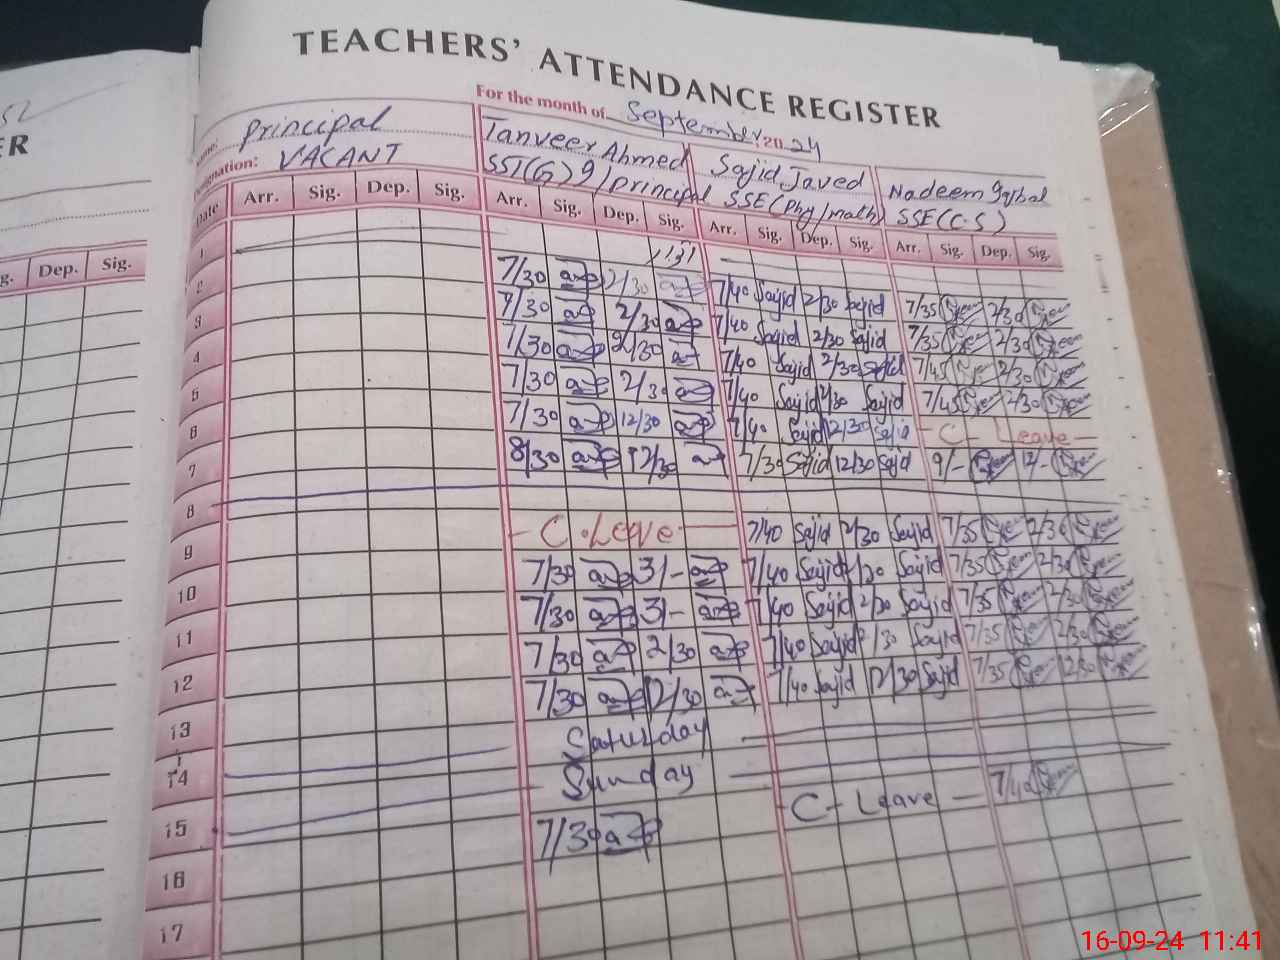 52
ER
TEACHERS' ATTENDANCE REGISTER
For the month of September 2024
Name: Principal
Designation: VACANT
Tanveer Ahmed Sajid Javed Nadeem Iqbal
SST(G) 9/Principal SSE(Phy/math) SSE(C.S)
g. Dep. Sig.
Date Arr. Sig. Dep. Sig. Arr. Sig. Dep. Sig. Arr. Sig. Dep. Sig. Arr. Sig. Dep. Sig.
1
2 7/30 2/30 7/40 Sajid 2/30 Sajid 7/35 2/30
3 7/30 2/30 7/40 Sajid 2/30 Sajid 7/35 2/30
4 7/30 2/30 7/40 Sajid 2/30 Sajid 7/45 2/30
5 7/30 2/30 7/40 Sajid 2/30 Sajid 7/45 2/30
6 7/30 12/30 7/40 Sajid 12/30 Sajid C- Leave
7 8/30 12/30 7/30 Sajid 12/30 Sajid 9/- 12/-
8
9 C. Leave 7/40 Sajid 2/30 Sajid 7/35 2/30
10 7/30 3/- 7/40 Sajid 2/30 Sajid 7/35 2/30
11 7/30 3/- 7/40 Sajid 2/30 Sajid 7/35 2/30
12 7/30 2/30 7/40 Sajid 2/30 Sajid 7/35 2/30
13 7/30 12/30 7/40 Sajid 12/30 Sajid 7/35 12/30
14 Saturday
15 Sunday
16 7/30 C- Leave 7/40
17
16-09-24 11:41